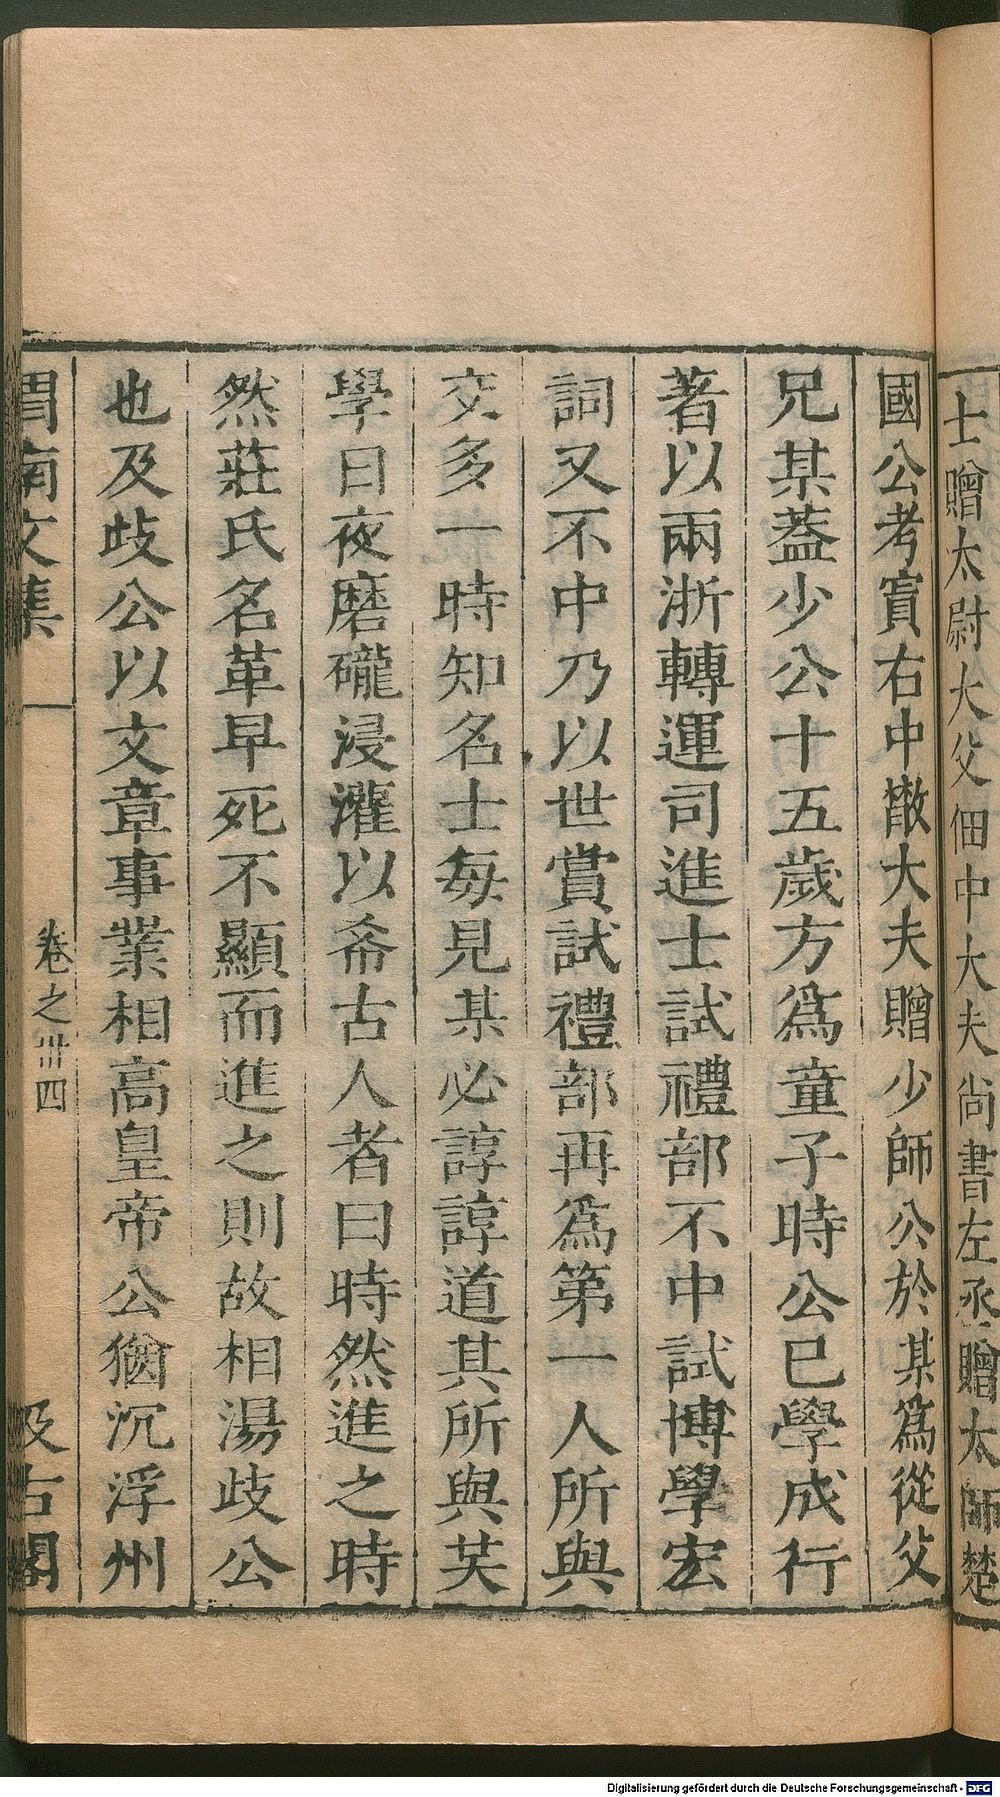 士贈太尉大父佃中大夫尚書左丞贈太師楚
國公考寘右中散大夫贈少師公於某爲從父
兄某葢少公十五歲方爲童子時公已學成行
著以兩浙轉運司進士試禮部不中試博學宏
詞又不中乃以世賞試禮部再爲第一人所與
交多一時知名士每見某必諄諄道其所與芙
學日夜磨礲浸灌以希古人者曰時然進之時
然莊氏名革早死不顯而進之則故相湯歧公
也及歧公以文章事業相高皇帝公猶沉浮州
渭南文集
卷之卅四
汲古閣
Digitalisierung gefördert durch die Deutsche Forschungsgemeinschaft - DFG